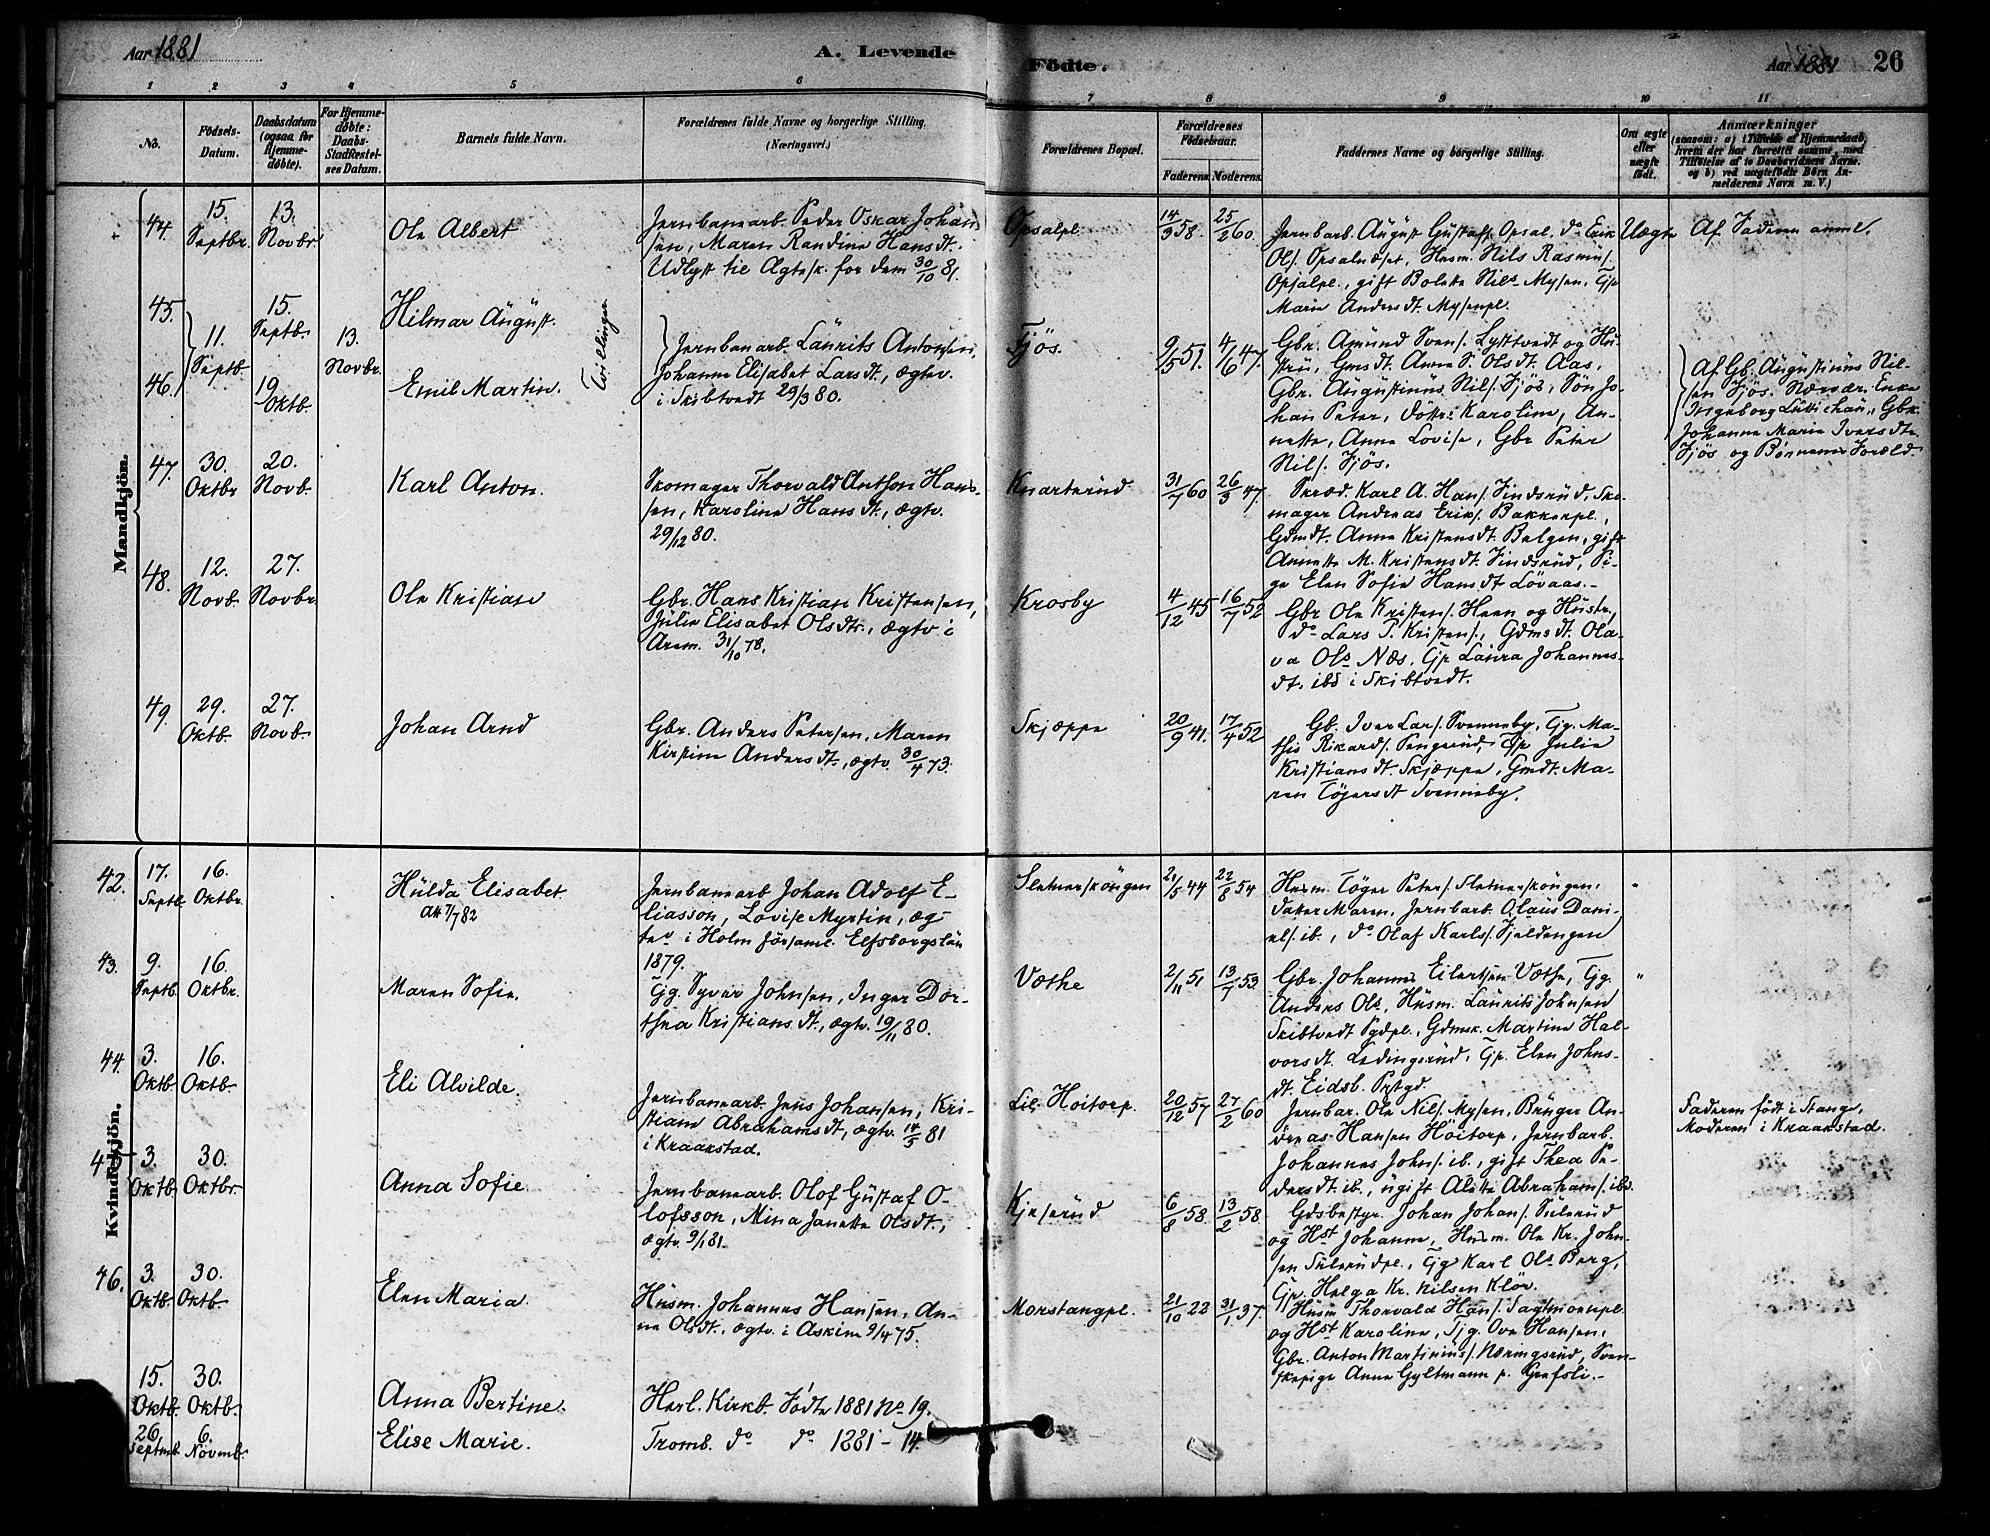 Aar 1881
A. Levende
Födte.
Aar 1881
26
1
2
3
4
5
6
7
8
9
10
11
No.
Födsels-
Datum.
Daabsdatum
(ogsaa for
Hjemme-
döbte).
For Hjemme-
döbte:
Daabs-
Stadfæstel-
ses Datum.
Barnets fulde Navn.
Forældrenes fulde Navne og borgerlige Stilling.
(Næringsvei.)
Forældrenes Bopæl.
Forældrenes
Födselsaar.
Faderens.
Moderens.
Faddernes Navne og borgerlige Stilling.
Om ægte
eller
uægte
födt.
Anmærkninger
(saasom: a) i Tilfælde af Hjemmedaab,
hvem der har forrettet samme, med
Tilföielse af to Daabsvidners Navne,
og b) ved uægtefödte Börn An-
melderens Navn m. V.)
Mandkjön.
44.
15.
Septbr.
13.
Novbr.
Ole Albert
Jernbanearb. Peder Oskar Johan-
sen, Maren Randine Hansdt.
Udlyst til Ægtesk. for dem 30/10 81.
Opsalpl.
14/3 58.
25/2 60.
Jernbarb. August Gustafs. Opsal, do Erik
Ols. Opsalødet, Husm. Nils Rasmus.
Opsalpl., gift Bolette Nils. Mysen, Tjp
Marie Andersdt. Mysenpl.
Uægte
Af Faderen anml.
45.
11.
Septb.
15.
Septbr
13.
Novbr.
Hilmar August.
Tvillinger
Jernbanearb. Laurits Antonsen,
Johanne Elisabet Larsdt., ægtev.
i Skibtvedt 29/3 80.
46.
19.
Oktb.
Emil Martin.
Fjös.
9/5 51.
4/6 47.
Gbr. Amund Svens. Lyttvedt og Hu-
stru, Gmsdt. Anna S. Olsdt. Aas,
Gbr. Augustinus Nils. Fjös, Sön Jo-
han Peter, Dottr: Karoline, An-
nette, Anne Lovise, Gbr Peter
Nils. Fjös.
Af Gb. Augustinus Nil-
sen Fjös. Nærvær. Enke
Ingeborg Lüttichau, Gbk.
Johanne Marie Iversdtr
Fjös og Børnenes Foræld.
47.
30.
Oktbr.
20.
Novb.
Karl Anton.
Skomager Thorvald Antson Han-
sen, Karoline Hansdt., ægtv.
29/12 80.
Knarterud
31/7 60
26/3 47.
Skræd. Karl A. Hans. Findsrud, Sko-
mager Andreas Eriks. Bakkerpl.,
Gdmdt. Anne Kristensdt. Belgen, gift
Annette M. Kristensdt. Findsrud, Pi-
ge Elen Sofie Hansdt Lövaas.-
48.
12.
Novb.
27.
Novbr.
Ole Kristian
Gbr. Hans Kristian Kristensen,
Julie Elisabet Olsdtr., ægtv i
Arem. 31/10 78.
Krosby
4/12 45
16/7 52
Gbr Ole Kristens. Heen og Hustr,
do Lars P. Kristens., Gdmsdt. Ola-
va Ols Næs, Tjp Laura Johannes-
dt. ibd i Skibtvedt.
49.
29.
Oktb.
27.
Novb.
Johan Arnd
Gbr. Anders Petersen, Maren
Kirstine Andersdt., ægtv. 30/4 73.
Skjæppe
20/9 41.
17/4 52
Gb. Iver Lars. Svenneby, Tjg. Ma-
this Rikards. Sengerud, Tjp Julie
Kristiansdt. Skjæppe, Gmdt. Ma-
ren Tögersdt Svenneby.
Kvindekjön.
42.
17.
Septb
16.
Oktbr.
Hulda Elisabet.
Att 7/7 82
Jernbanearb Johan Adolf E-
liasson, Lovise Myrtin, æg-
tev i Holm församl. Elfsborgslän
1879.
Sletnersköngen
21/5 44
22/8 54
Husm. Töger Peters. Sletnersköngen,
Datter Maren, Jernbarb. Olaus Dani-
els. ib., do Olaf Karls. Fjeldengen
"
43.
9.
Septb.
16.
Oktbr.
Maren Sofie.
Tjg. Syver Johnsen, Inger Dor-
thea Kristiansdt., ægtv. 19/11 80.
Vøthe
2/11 51
13/7 53
Gbr. Johannes Eilertsen Vøthe, Tjg.
Anders Ols, Husm. Laurits Johnsen
Skibtvedt Sydpl., Gdmsk. Martine Hal-
vorsdt. Ledingsrud, Tjp. Elen Johns-
dt. Eidsb. Prstgd.
"
44.
3.
Oktb.
16.
Oktb.
Eli Alvilde.
Jernbanearb. Jens Johansen, Kri-
stiane Abrahamsdt, ægtv. 14/5 81
i Kraakstad.
Lil. Höitorp.
20/12 57
27/2 60
Jernbar. Ole Nils. Mysen, Bruger An-
dreas Hansen Höitorp, Jernbarb.
Johannes Johns. ib., gift Thea Pe-
dersdt. ib., ugift Alette Abrahams. ibd.
Faderen födt i Stange,
Moderen i Kraakstad.
45
3.
Oktb.
30.
Oktbr.
Anna Sofie.
Jernbanearb. Olof Gustaf O-
lofsson, Mina Janette Olsdt,
ægtv. 9/1 81
Kjeserud
6/8 58.
13/2 58.
Gdsbestyr. Johan Johans. Sulerud
og Hst Johanne, Husm. Ole Kr. John-
sen Sulerudpl., Tjg Karl Ols. Berg,
Tjp. Helga Kr. Nilsen Klöv.
46.
3.
Oktb.
30.
Oktb.
Elen Maria.
Husm. Johannes Hansen, An-
ne Olsdt., ægtv. i Askim 9/4 75.
Morstangpl.
21/10 22
31/1 37.
Husm Thorvald Hans. Sagtmoenpl.
og Hst Karoline, Tjg. Ove Hansen,
Gbr. Anton Martinius. Næringsrud, Sven-
skepige Anna Gyltmann p. Grefsli.-
15.
Oktb.
30.
Oktb.
Anna Bertine.
Herl. Kirkb. Födte 1881 No 19.
26.
Septmb.
6.
Novmb.
Elise Marie.
Tromb. do do 1881 - 14.